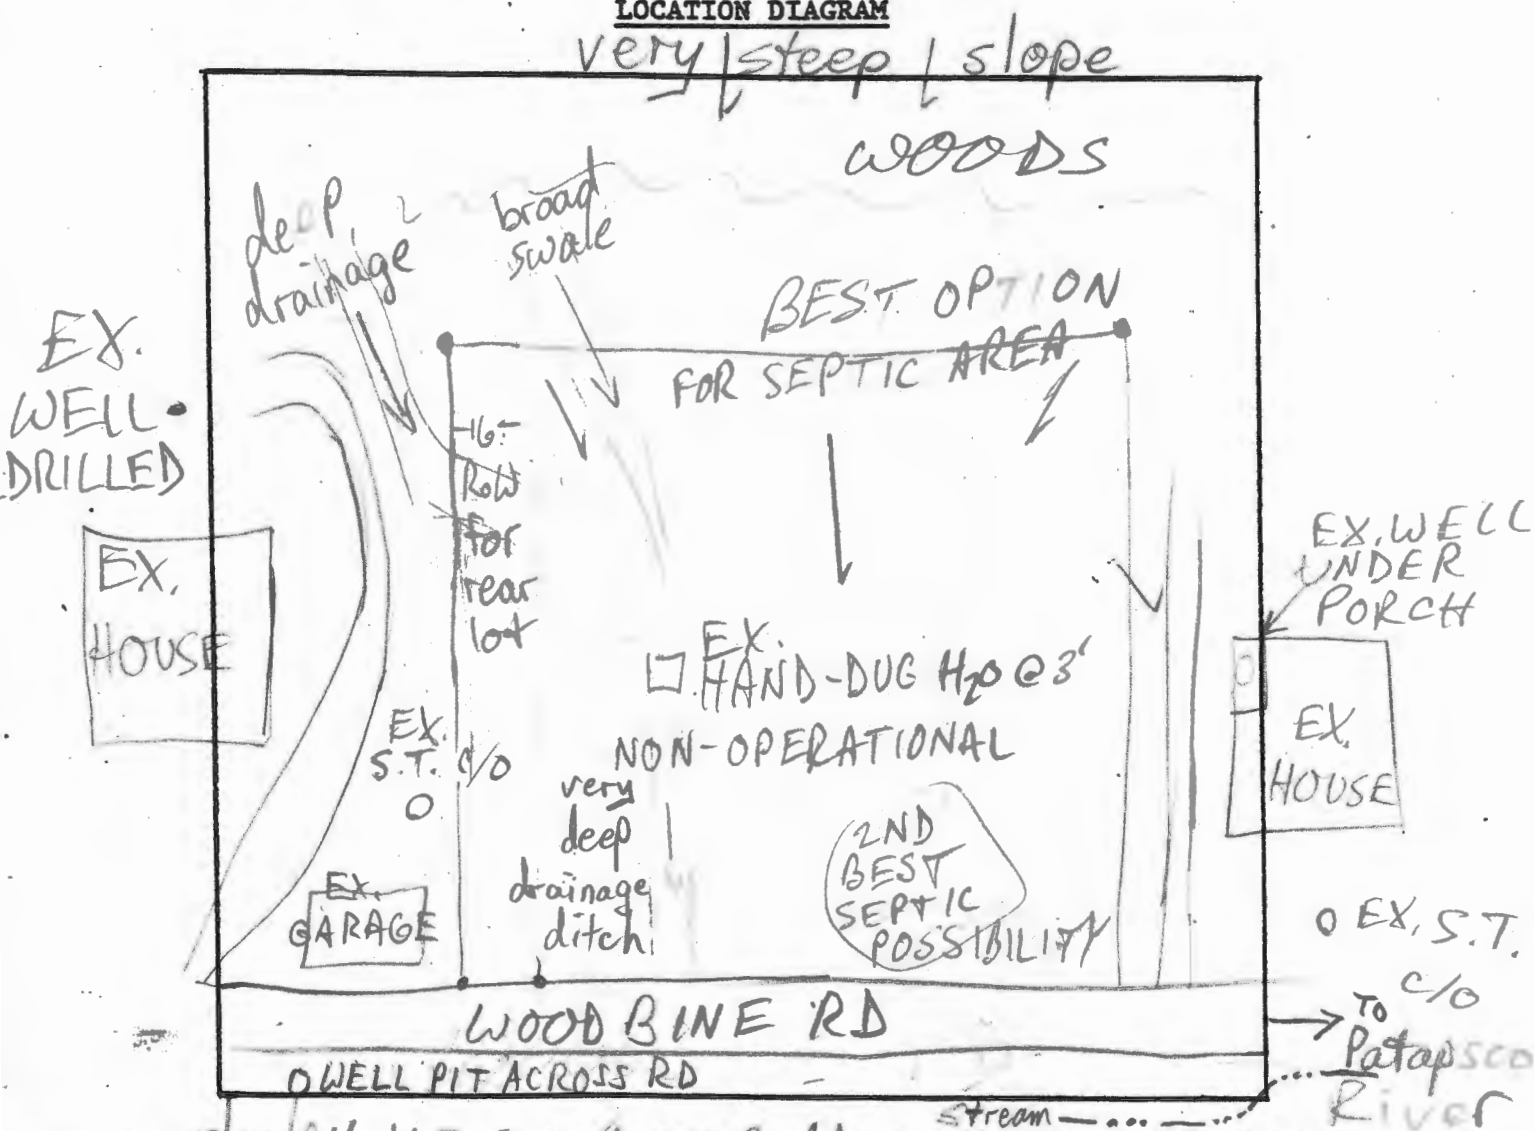 LOCATION DIAGRAM
very steep slope
WOODS
deep
drainage
broad
swale
BEST OPTION
FOR SEPTIC AREA
EX.
WELL
DRILLED
16'
ROW
for
rear
lot
EX.
HOUSE
EX. WELL
UNDER
PORCH
EX.
HAND-DUG H2O @ 3'
NON-OPERATIONAL
EX.
S.T. c/o
EX.
HOUSE
very
deep
drainage
ditch
2ND
BEST
SEPTIC
POSSIBILITY
EX.
GARAGE
EX. S.T.
c/o
WOODBINE RD
TO
Patapsco
River
WELL PIT ACROSS RD
stream